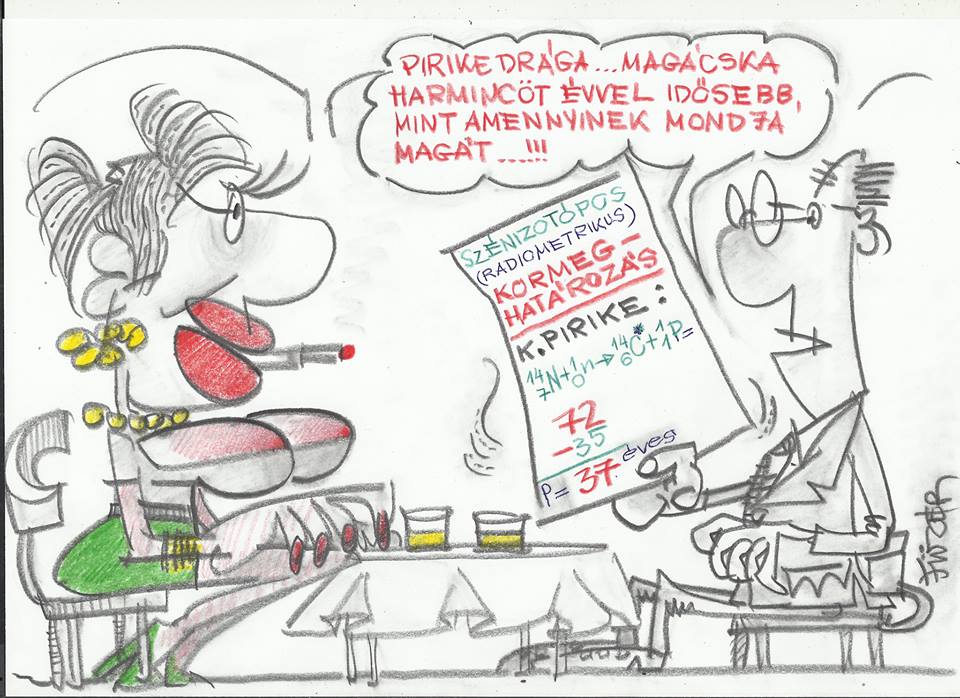 PIRIKE DRÁGA...MAGÁCSKA
HARMINCÖT ÉVVEL IDŐSEBB,
MINT AMENNYINEK MONDJA
MAGÁT...!!!
SZÉNIZOTÓPOS
(RADIOMETRIKUS)
KORMEG-
HATÁROZÁS
K.PIRIKE:
¹⁴₇N+¹₀n→¹⁴₆C+¹₁P=
72
-35
P= 37. éves
FŰZÉR